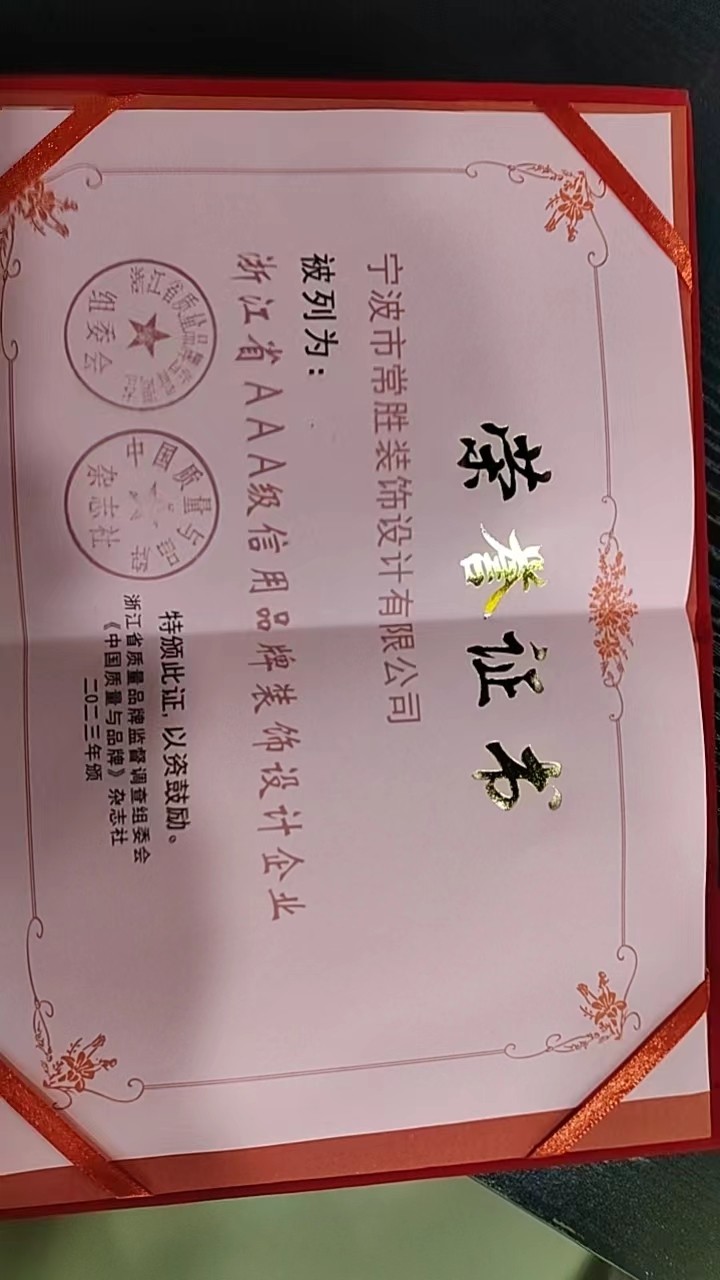 荣誉证书
宁波市常胜装饰设计有限公司
被列为：
浙江省AAA级信用品牌装饰设计企业
特颁此证，以资鼓励。
浙江省质量品牌监督调查组委会
《中国质量与品牌》杂志社
二〇二三年颁
组委会
中国质量与品牌
杂志社